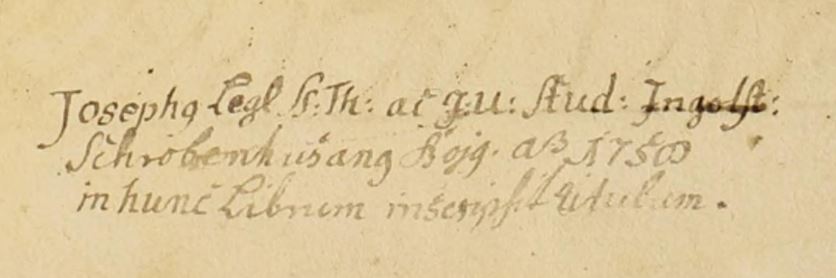 Josephꝰ Legl SS: Th: ac J:U: Stud: Ingolst:
Schrobenhusanꝰ Bojꝰ. aō 1750
in hunc Librum inscripsit titulum.